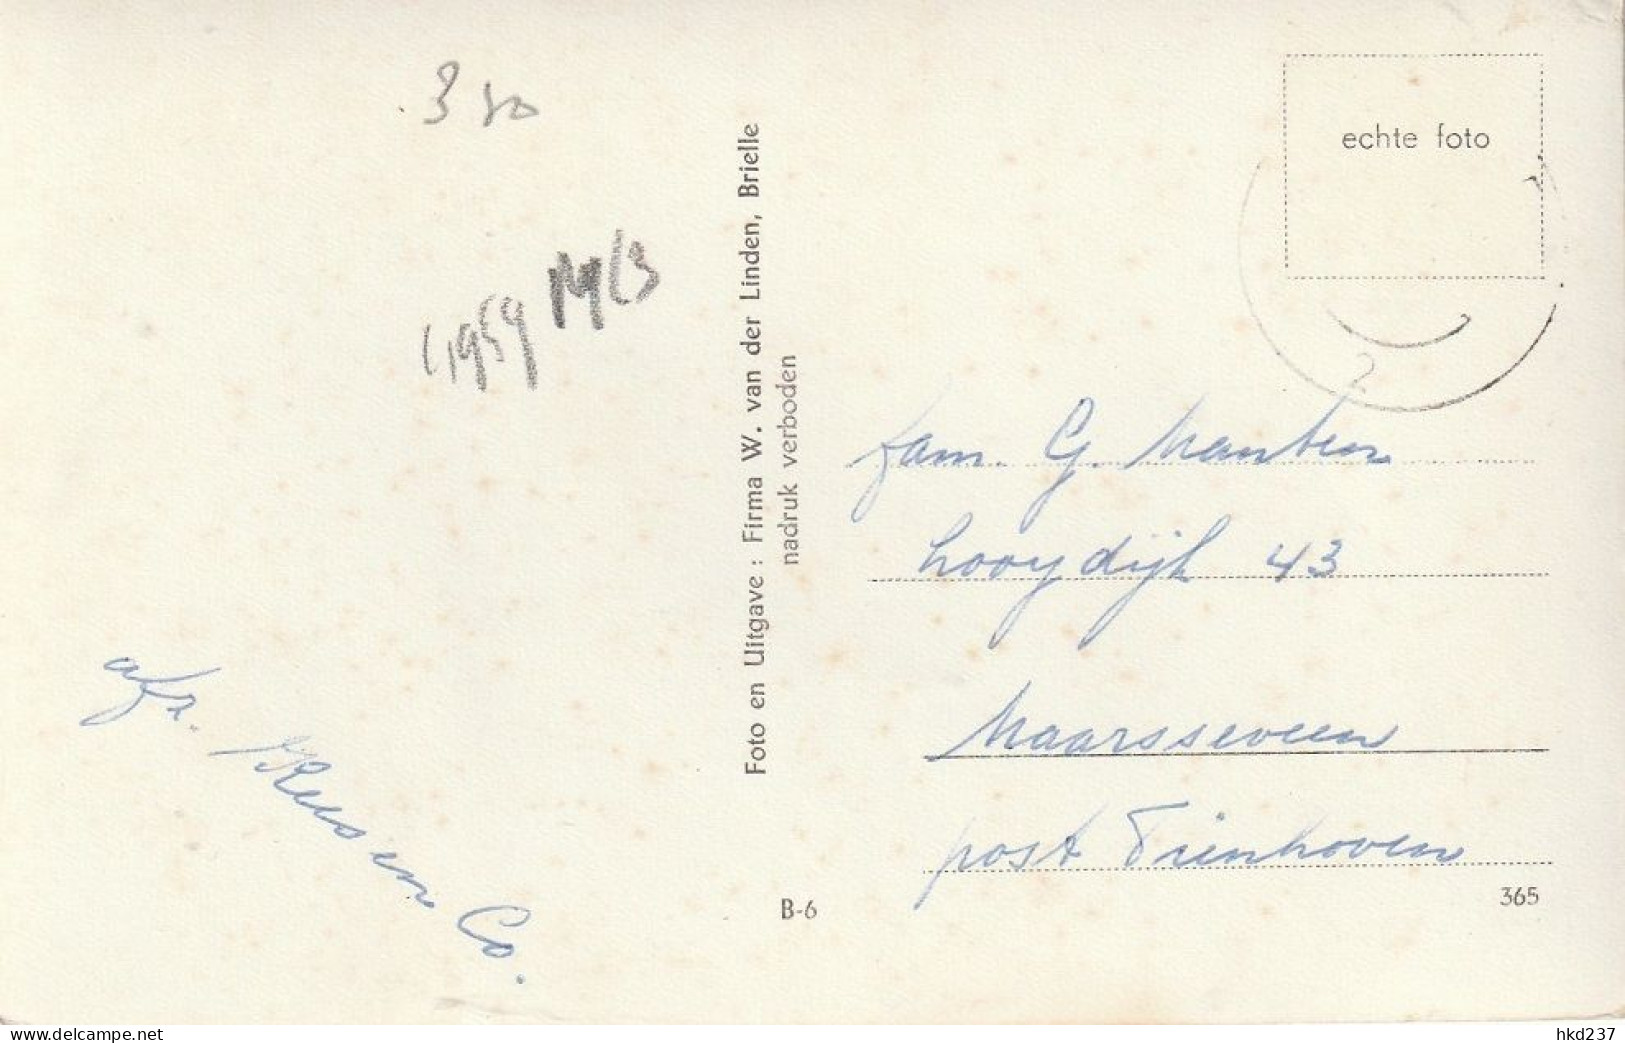 3 50
echte foto
Foto en Uitgave : Firma W. van der Linden, Brielle
nadruk verboden
(1959
2
fam. G. Manten
hooydijk 43
Maarsseveen
post Tienhoven
afz.
en Co.
B-6
365
www.delcampe.net
hkd237